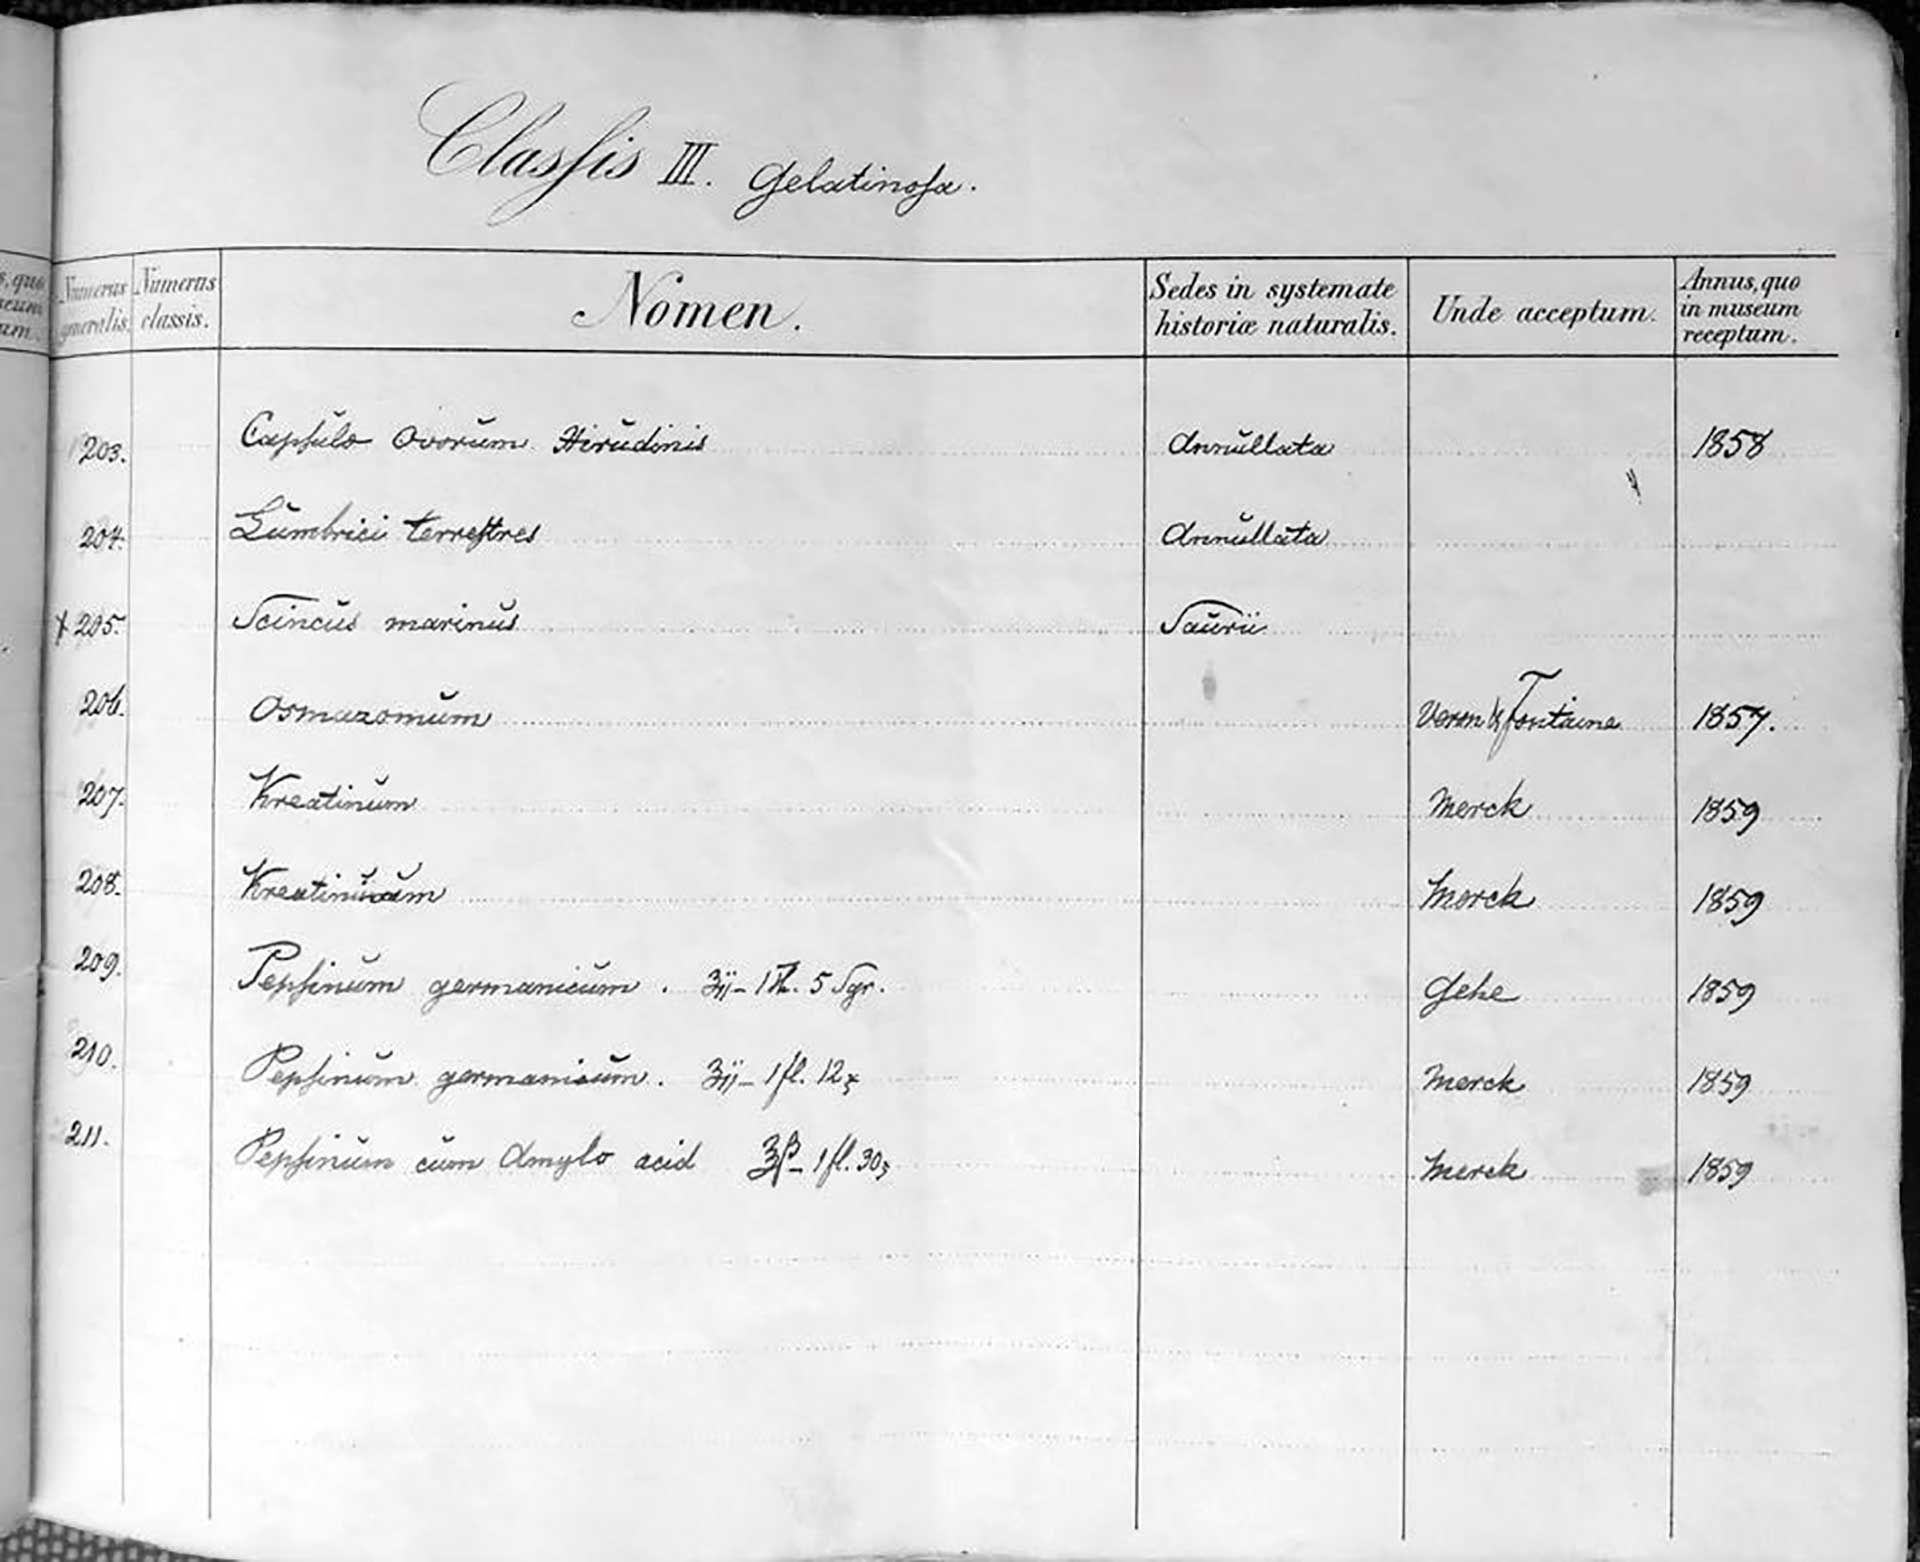 Classis III. Gelatinosa.
s, quo
seum
um.
Numerus generalis.
Numerus classis.
Nomen.
Sedes in systemate historiæ naturalis.
Unde acceptum.
Annus, quo in museum receptum.
203. Capsulo Ovorum Hirudinis Annullata 1858
204. Lumbrici terrestres Annullata
x 205. Scincus marinus Saurii
206. Osmazomum Veron & Fontaine 1857.
207. Kreatinum Merck 1859
208. Merck 1859
209. Pepsinum germanicum. ʒij – 1 5 Sgr. Gehe 1859
210. Pepsinum germanicum. ʒij – 1 fl. 12 Merck 1859
211. Pepsinum cum Amylo acid ʒß – 1 fl. 30 Merck 1859